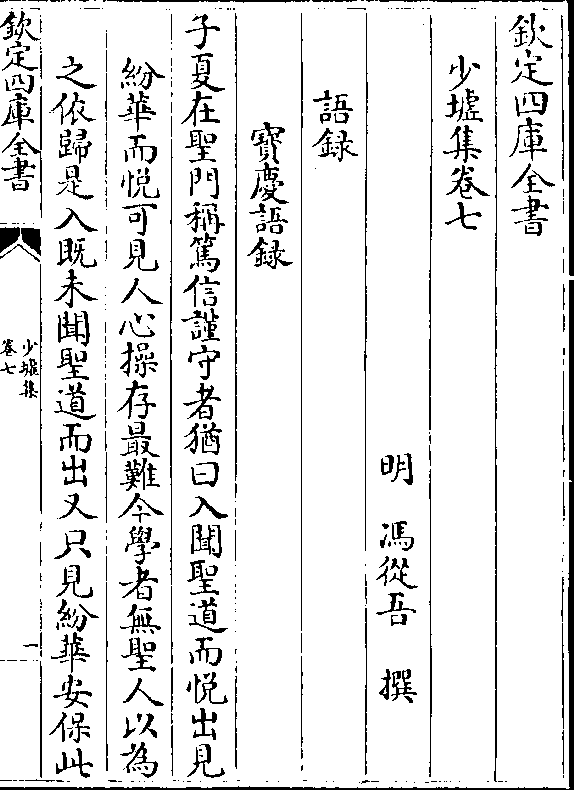 欽定四庫全書
少墟集卷七
明 馮從吾 撰
語録
寳慶語録
子夏在聖門稱篤信謹守者猶曰入聞聖道而悦出見
紛華而悦可見人心操存最難今學者無聖人以為
之依歸是入既未聞聖道而出又只見紛華安保此
欽定四庫全書
少墟集
卷七
一